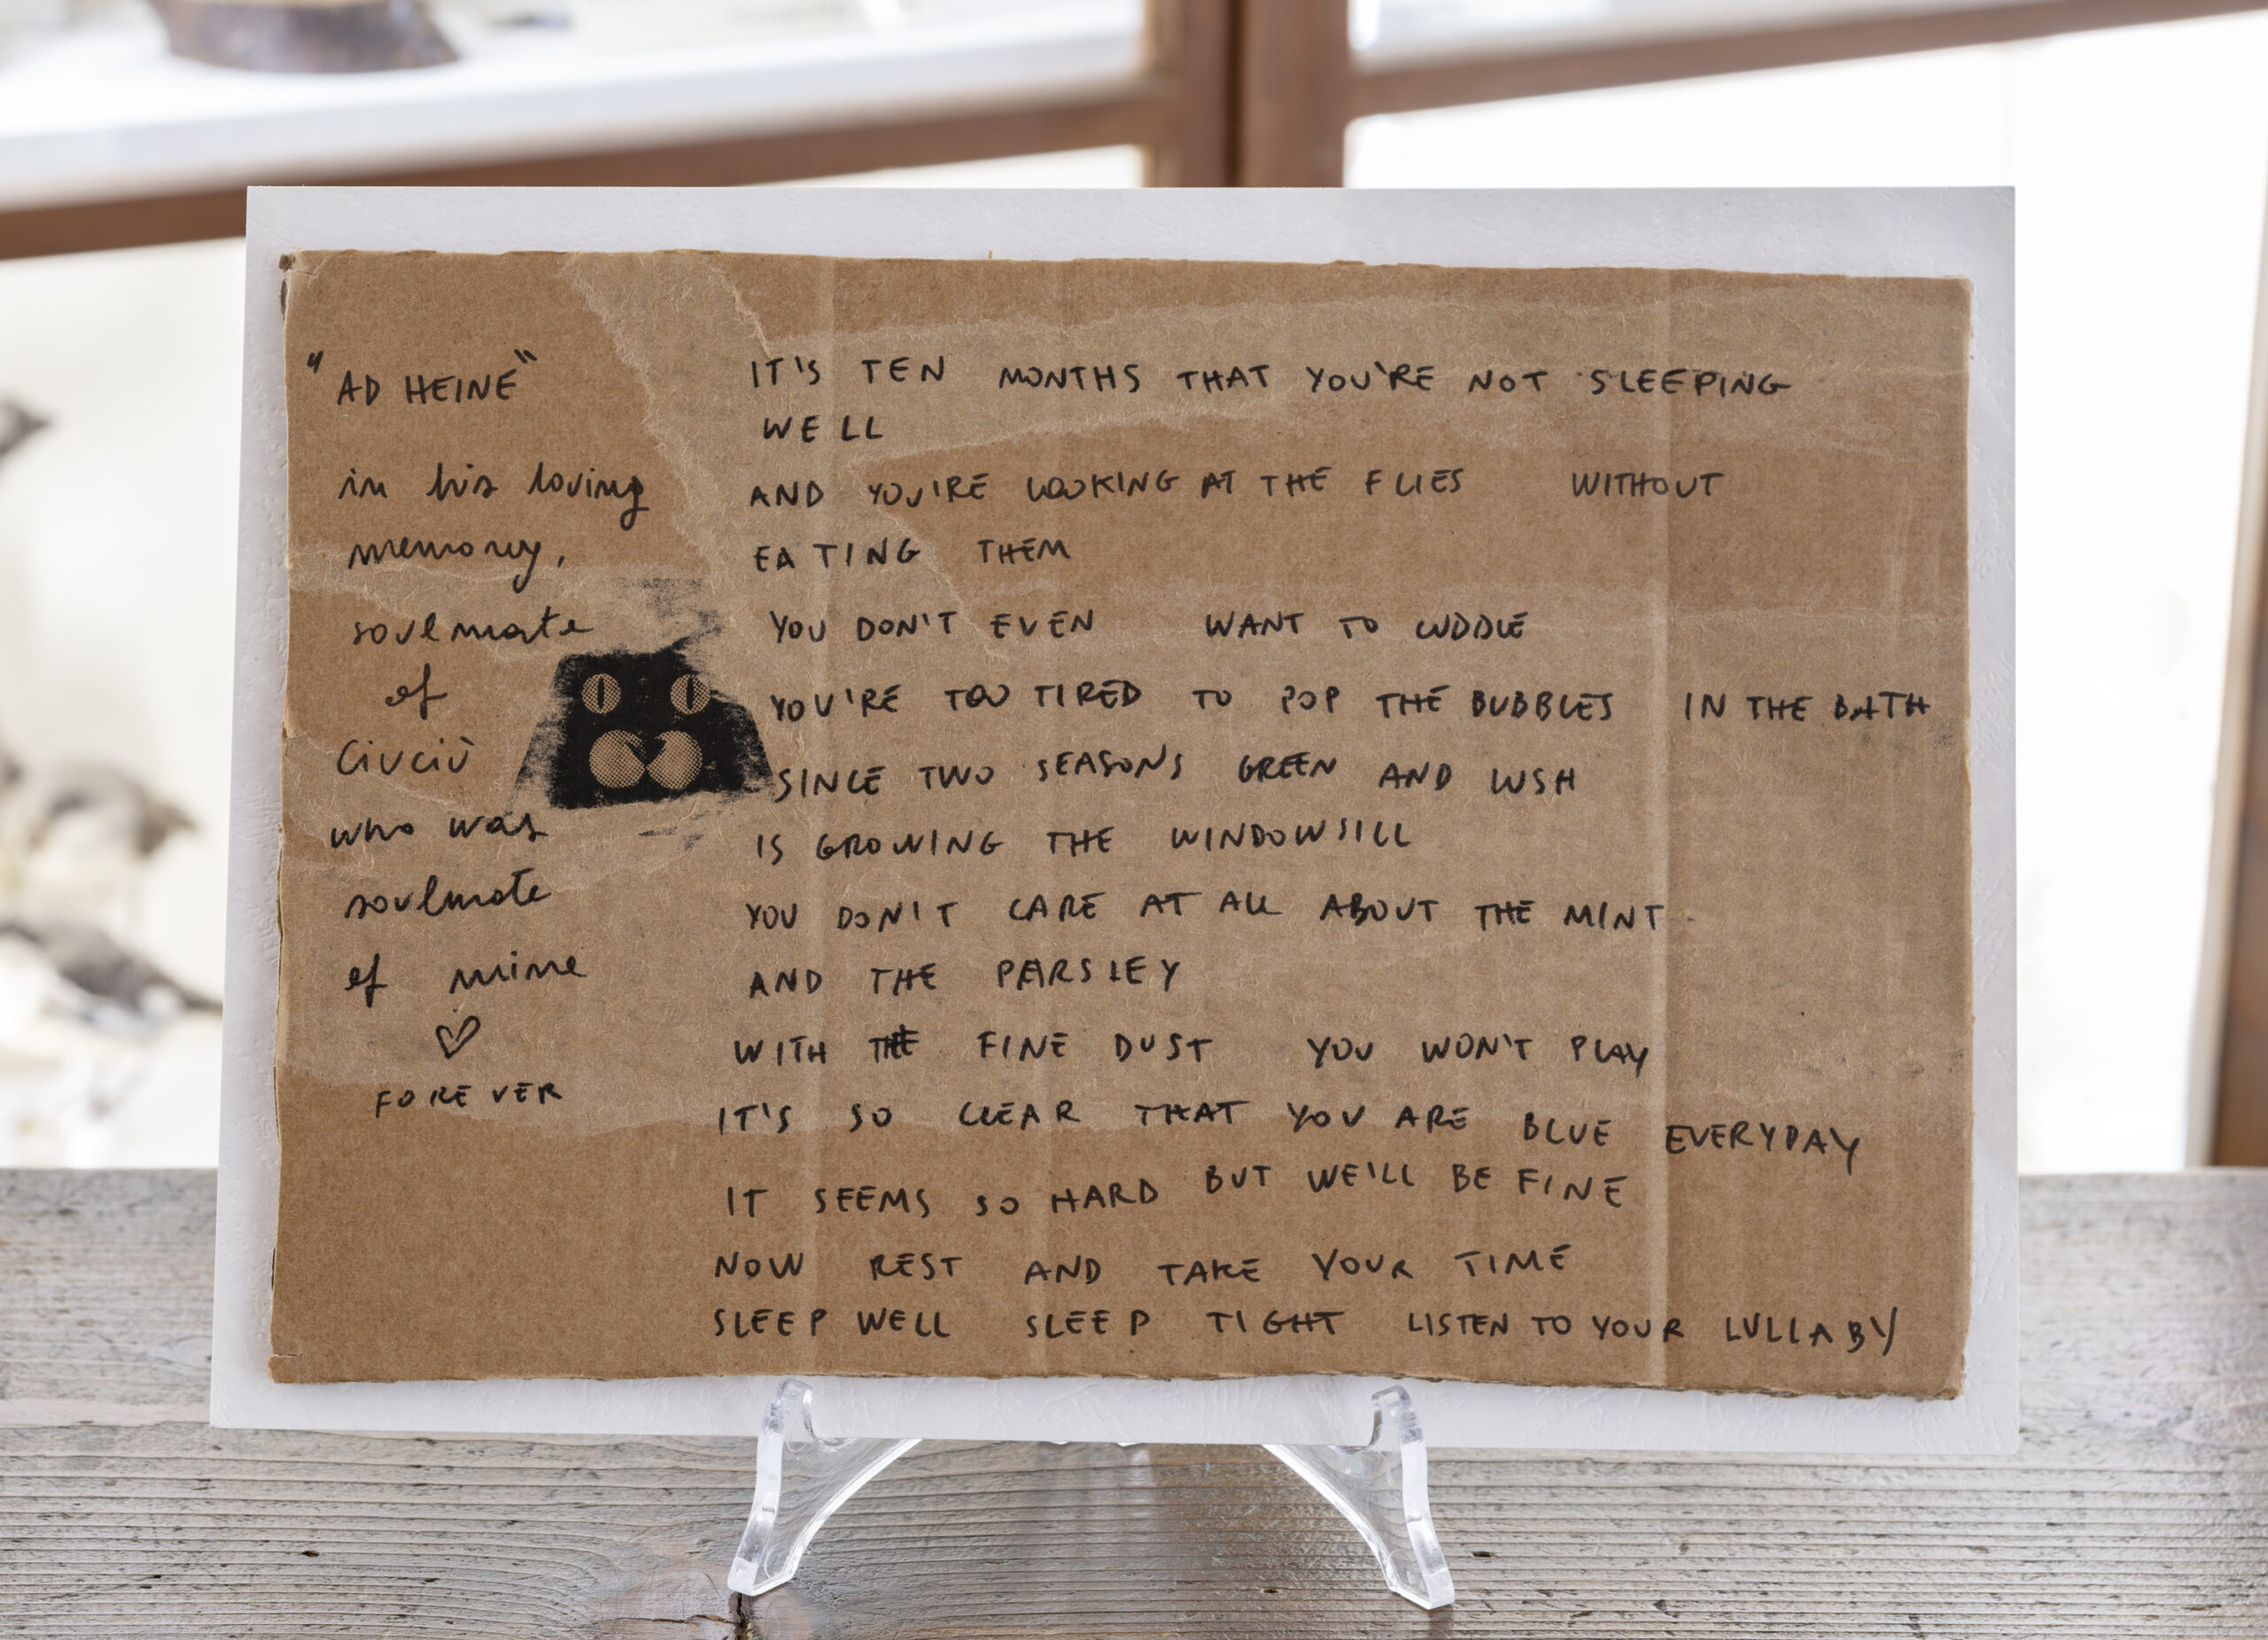 "AD HEINE"
in his loving
memory,
soulmate
of
Ciuciù
who was
soulmate
of mine
FOREVER
IT'S TEN MONTHS THAT YOU'RE NOT SLEEPING
WELL
AND YOU'RE LOOKING AT THE FLIES WITHOUT
EATING THEM
YOU DON'T EVEN WANT TO CUDDLE
YOU'RE TOO TIRED TO POP THE BUBBLES IN THE BATH
SINCE TWO SEASONS GREEN AND LUSH
IS GROWING THE WINDOWSILL
YOU DON'T CARE AT ALL ABOUT THE MINT
AND THE PARSLEY
WITH THE FINE DUST YOU WON'T PLAY
IT'S SO CLEAR THAT YOU ARE BLUE EVERYDAY
IT SEEMS SO HARD BUT WE'LL BE FINE
NOW REST AND TAKE YOUR TIME
SLEEP WELL SLEEP TIGHT LISTEN TO YOUR LULLABY